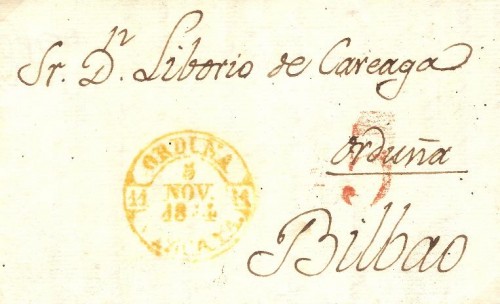 Sr. Dn. Liborio de Careaga
Orduña
Bilbao
ORDUÑA
5
NOV
11 11